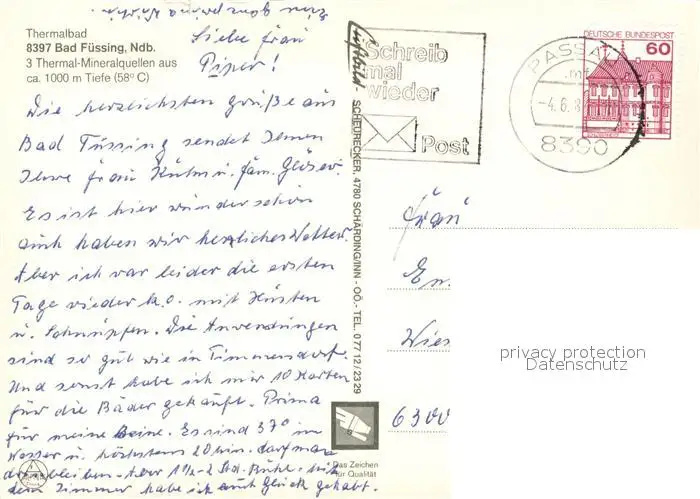 Thermalbad
8397 Bad Füssing, Ndb.
3 Thermal-Mineralquellen aus
ca. 1000 m Tiefe (58° C)
Liebe Frau
Piper!
Die herzlichsten Grüße aus
Bad Füssing sendet Ihnen
Ihre Frau Kühn u. Fam. Gläser.
Es ist hier wunderschön
auch haben wir herrliches Wetter.
Aber ich war leider die ersten
Tage wieder k.o. mit Husten
u. Schnupfen. Die Anwendungen
sind so gut wie in Timmendorf.
Und sonst habe ich mir 10 Karten
für die Bäder gekauft. Prima
für meine Beine. Es sind 37° im
Wasser u. höchstens 20 min. darf man
drin bleiben. Aber 1½-2 Std. Ruhe. Mit
dem Zimmer habe ich auch Glück gehabt.
Luftbild - SCHEURECKER, 4780 SCHÄRDING/INN - OÖ,- TEL. 0 77 12 / 23 29
Das Zeichen
für Qualität
Schreib
mal
wieder
Post
PASSAU
-4.6.8
8390
DEUTSCHE BUNDESPOST
60
Frau
Wies
6300
privacy protection
Datenschutz